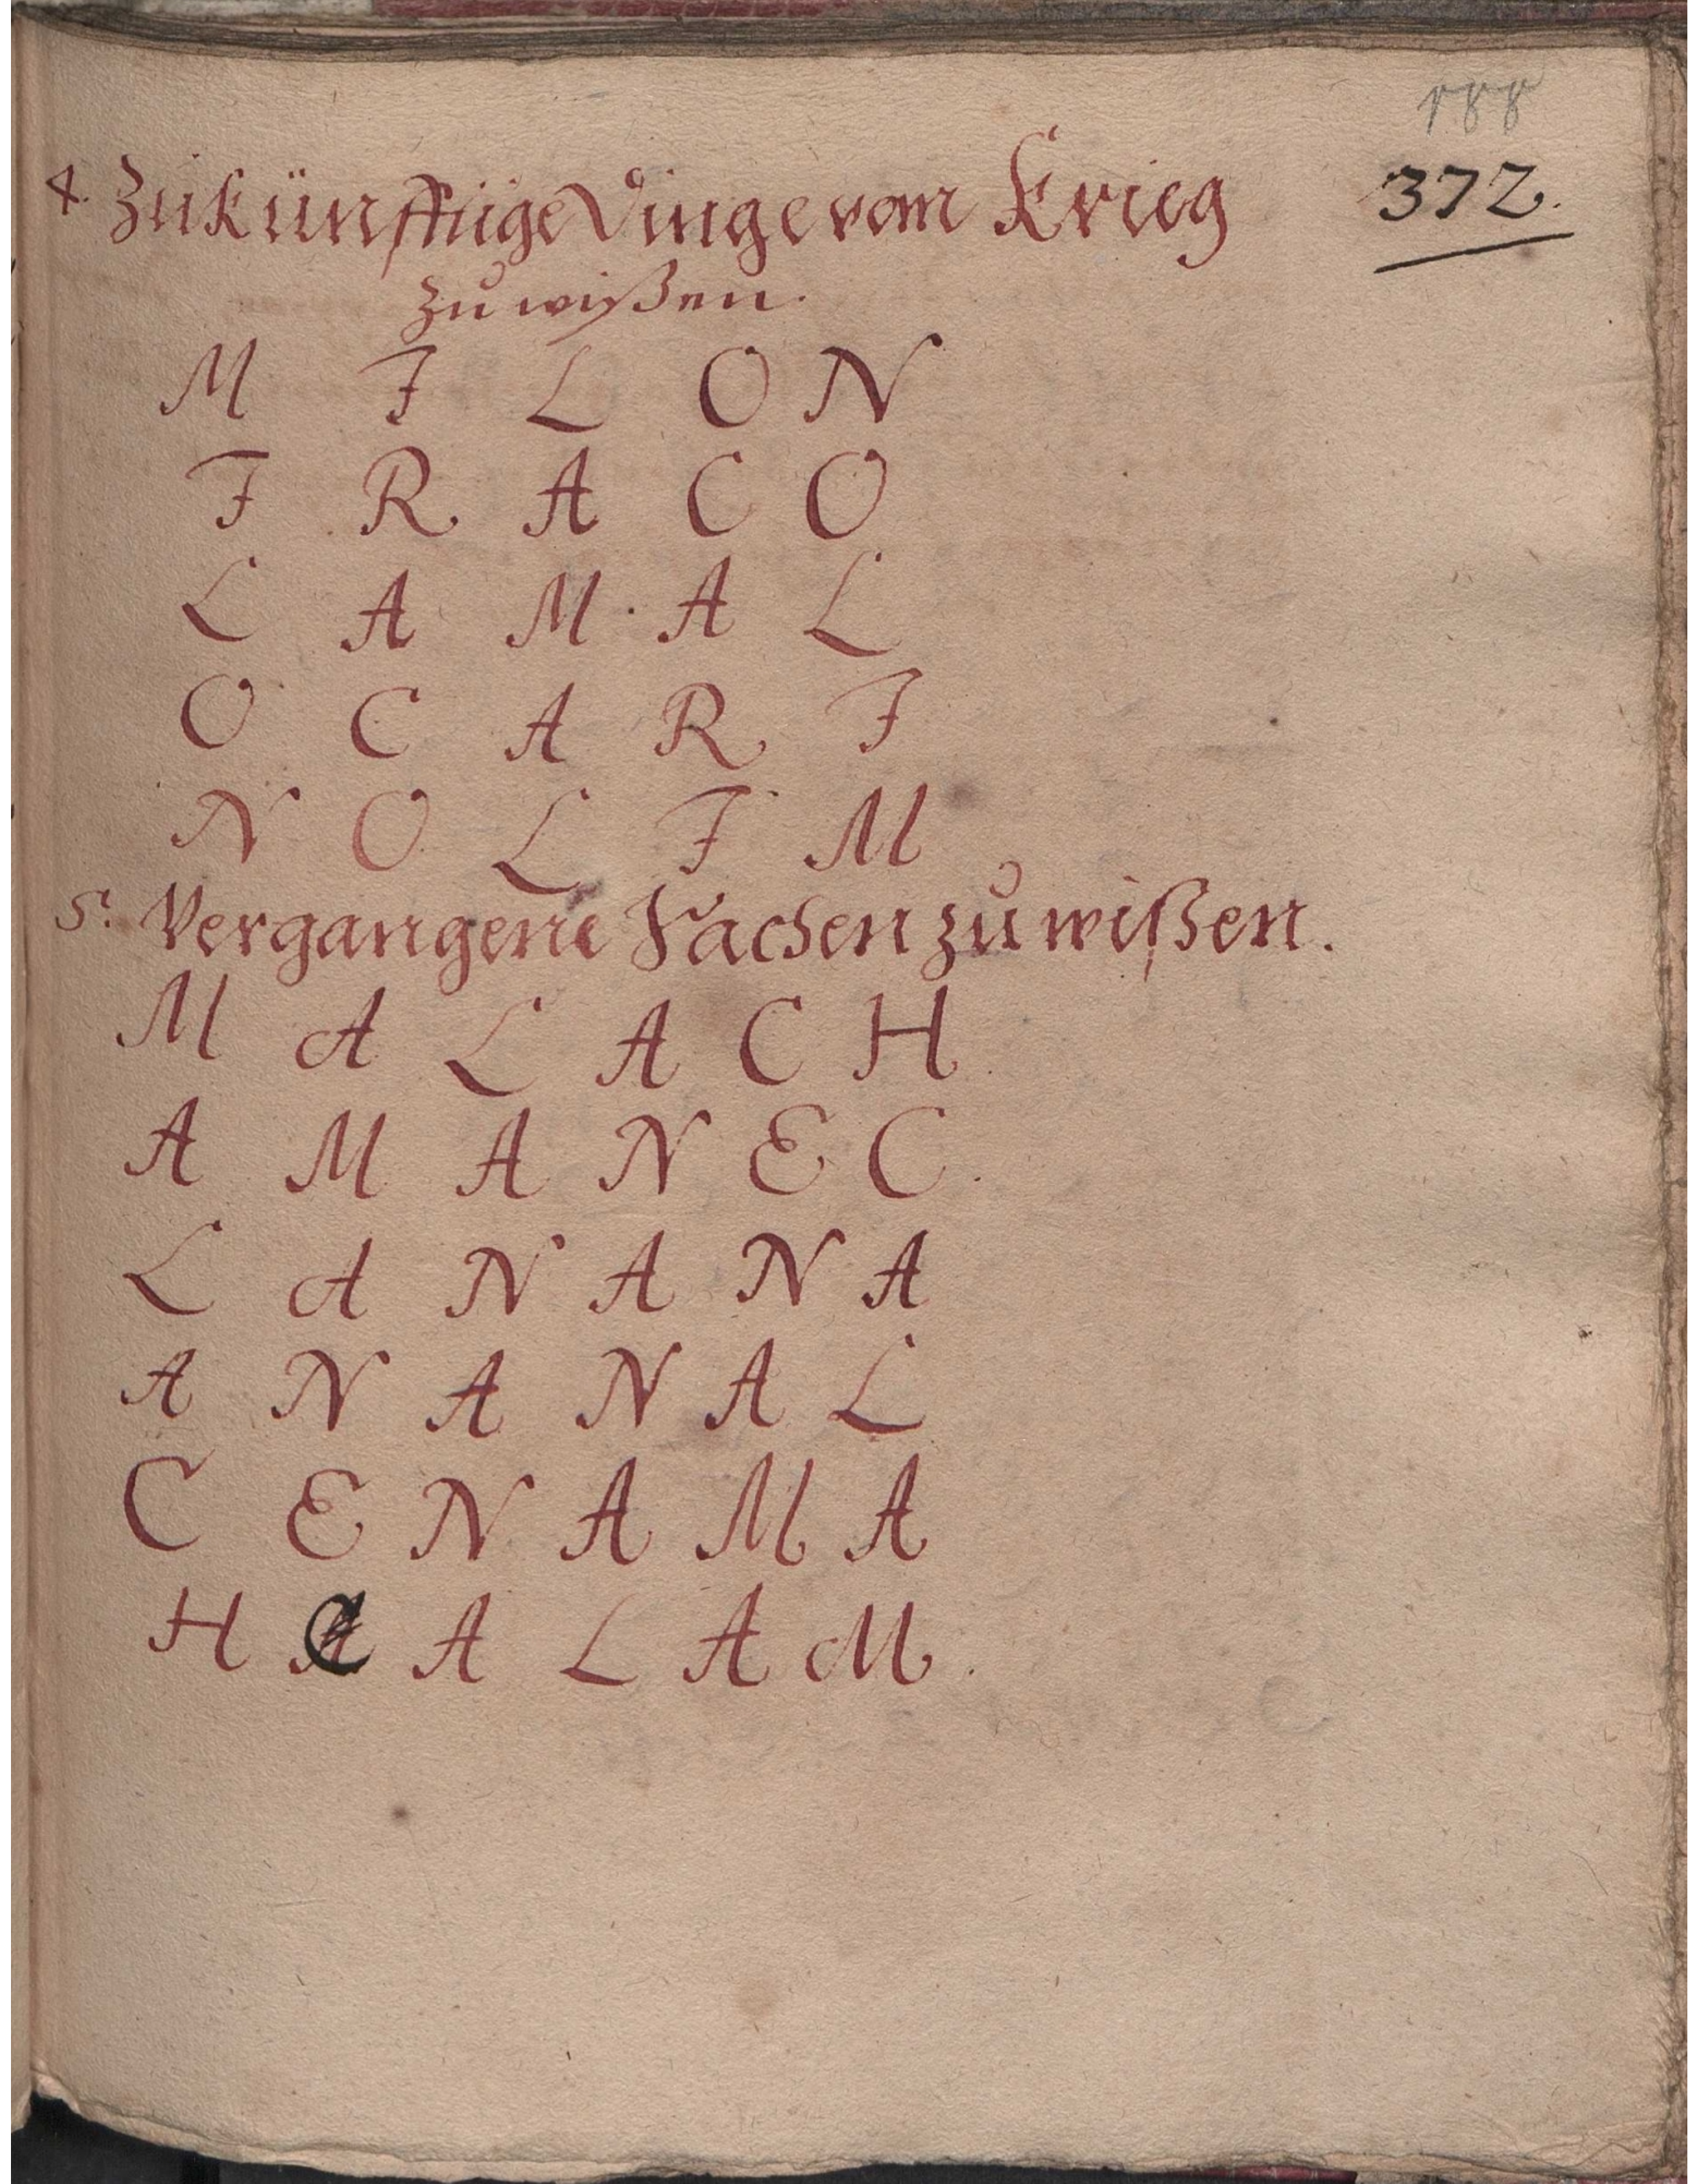 4. Zukünfftige Dinge vom Krieg
372.
zu wißen.
M I L O N
I R A C O
L A M A L
O C A R I
N O L I M
5. Vergangene Sachen zu wißen.
M A L A C H
A M A N E C.
L A N A N A
A N A N A L
C E N A M A
H C A L A M.